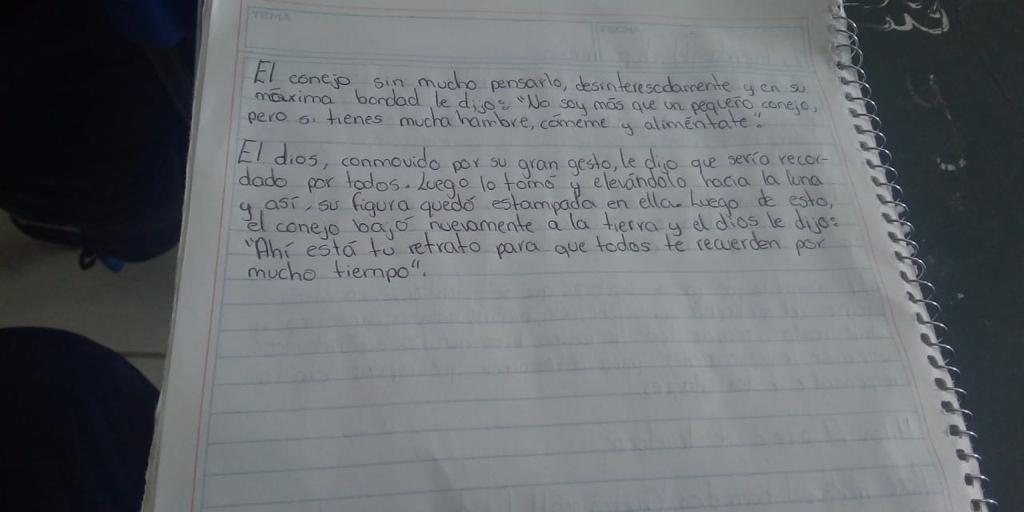 TEMA
FECHA
El conejo sin mucho pensarlo, desinteresadamente y en su
máxima bondad le dijo: "No soy más que un pequeño conejo,
pero si tienes mucha hambre, cómeme y aliméntate".
El dios, conmovido por su gran gesto, le dijo que sería recor-
dado por todos. Luego lo tomó y elevándolo hacia la luna
y así, su figura quedó estampada en ella. Luego de esto,
el conejo bajó nuevamente a la tierra y el dios le dijo:
"Ahí está tu retrato para que todos te recuerden por
mucho tiempo".